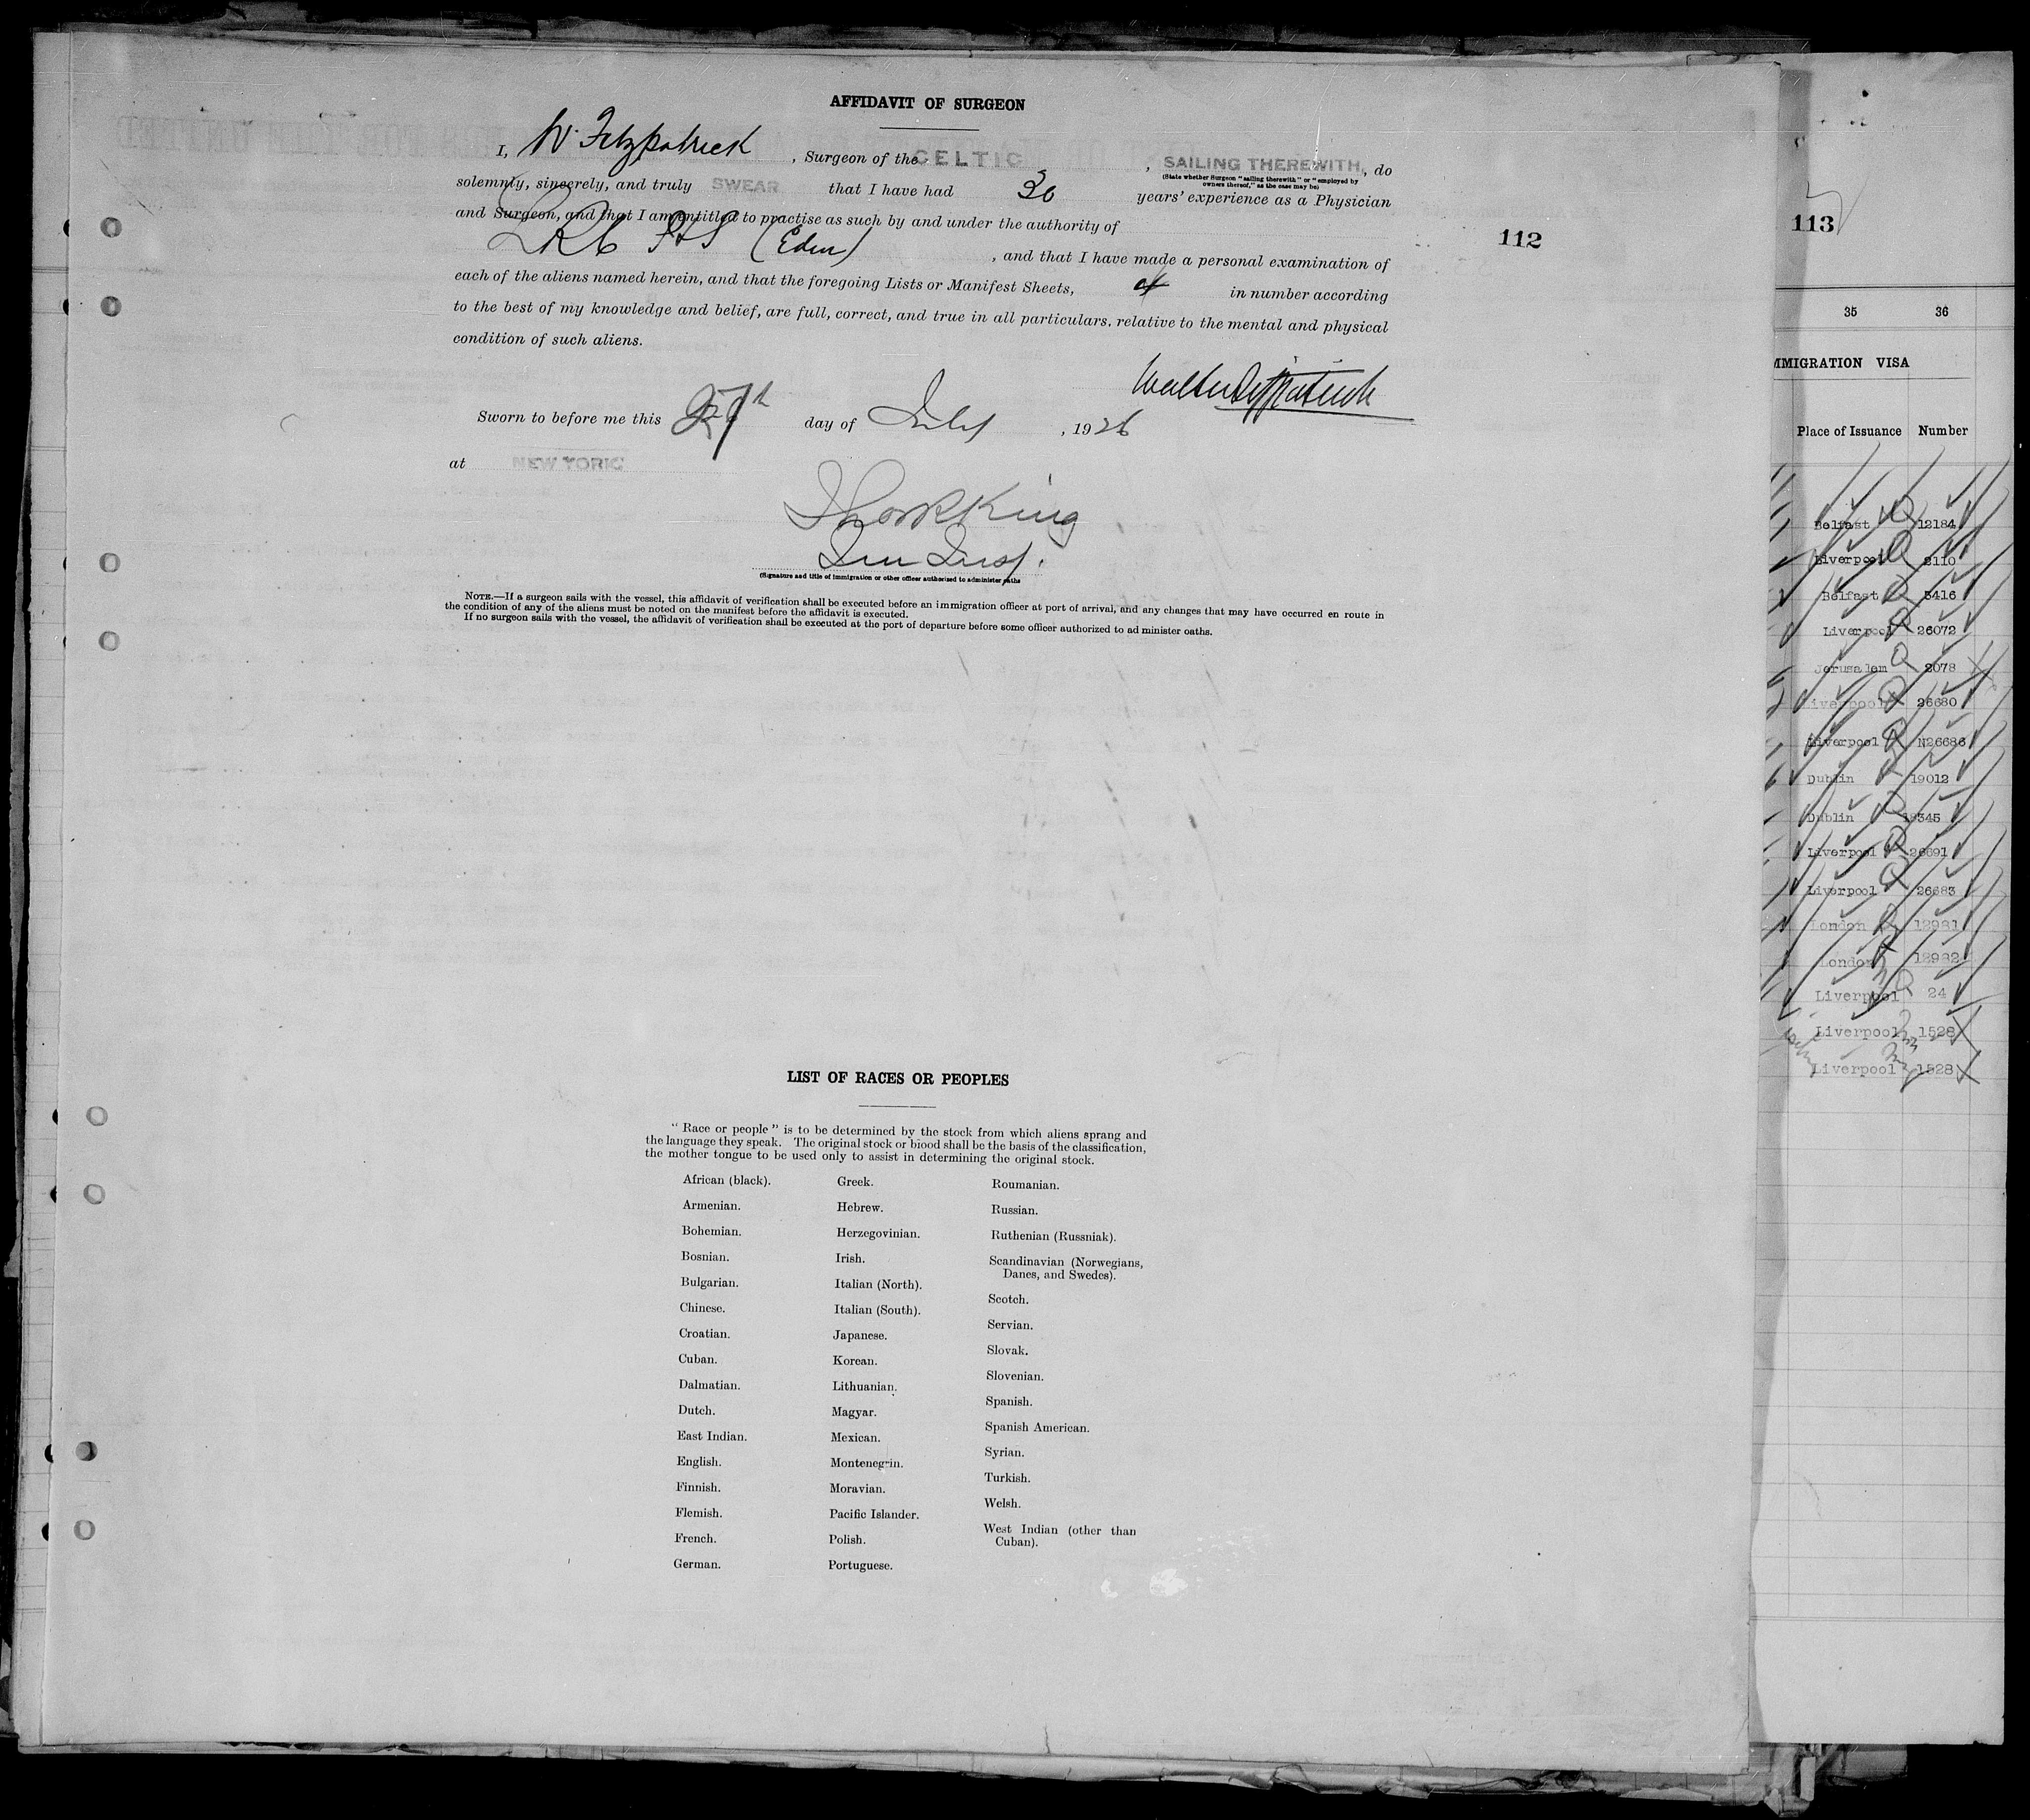 AFFIDAVIT OF SURGEON
I, W. Fitzpatrick, Surgeon of the CELTIC, SAILING THEREWITH, do
(State whether Surgeon "sailing therewith" or "employed by
owners thereof," as the case may be)
solemnly, sincerely, and truly SWEAR that I have had 30 years' experience as a Physician
and Surgeon, and that I am entitled to practise as such by and under the authority of
(Edin), and that I have made a personal examination of
each of the aliens named herein, and that the foregoing Lists or Manifest Sheets, in number according
to the best of my knowledge and belief, are full, correct, and true in all particulars, relative to the mental and physical
condition of such aliens.
Walter Fitzpatrick
Sworn to before me this 27th day of July, 1926
at NEW YORK
King
Imm Insp.
(Signature and title of immigration or other officer authorized to administer oaths
NOTE.—If a surgeon sails with the vessel, this affidavit of verification shall be executed before an immigration officer at port of arrival, and any changes that may have occurred en route in
the condition of any of the aliens must be noted on the manifest before the affidavit is executed.
If no surgeon sails with the vessel, the affidavit of verification shall be executed at the port of departure before some officer authorized to ad minister oaths.
112
LIST OF RACES OR PEOPLES
" Race or people " is to be determined by the stock from which aliens sprang and
the language they speak. The original stock or blood shall be the basis of the classification,
the mother tongue to be used only to assist in determining the original stock.
African (black).
Armenian.
Bohemian.
Bosnian.
Bulgarian.
Chinese.
Croatian.
Cuban.
Dalmatian.
Dutch.
East Indian.
English.
Finnish.
Flemish.
French.
German.
Greek.
Hebrew.
Herzegovinian.
Irish.
Italian (North).
Italian (South).
Japanese.
Korean.
Lithuanian.
Magyar.
Mexican.
Montenegrin.
Moravian.
Pacific Islander.
Polish.
Portuguese.
Roumanian.
Russian.
Ruthenian (Russniak).
Scandinavian (Norwegians,
Danes, and Swedes).
Scotch.
Servian.
Slovak.
Slovenian.
Spanish.
Spanish American.
Syrian.
Turkish.
Welsh.
West Indian (other than
Cuban).
113
35 36
IMMIGRATION VISA
Place of Issuance Number
Belfast 12184
Liverpool 2110
Belfast 5416
Liverpool 26072
Jerusalem 2078
Liverpool 26680
Liverpool N26686
Dublin 19012
Dublin
Liverpool 26691
Liverpool 26683
London 12981
London 12982
Liverpool 24
Liverpool 1528
Liverpool 1528